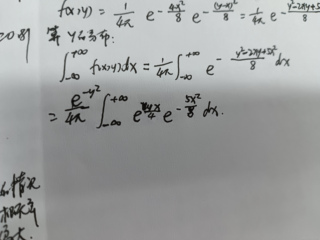 f(x,y) = 1/4π e^{-4x²/8} e^{-(y-x)²/8} = 1/4π e^{-y²-2xy+5x²
算 Y的
∫_{-∞}^{+∞} f(x,y)dx = 1/4π ∫_{-∞}^{+∞} e^{-\frac{y²-2xy+5x²}{8}} dx
= \frac{e^{-y²}}{4π} ∫_{-∞}^{+∞} e^{\frac{yx}{4}} e^{-\frac{5x²}{8}} dx.
的情况